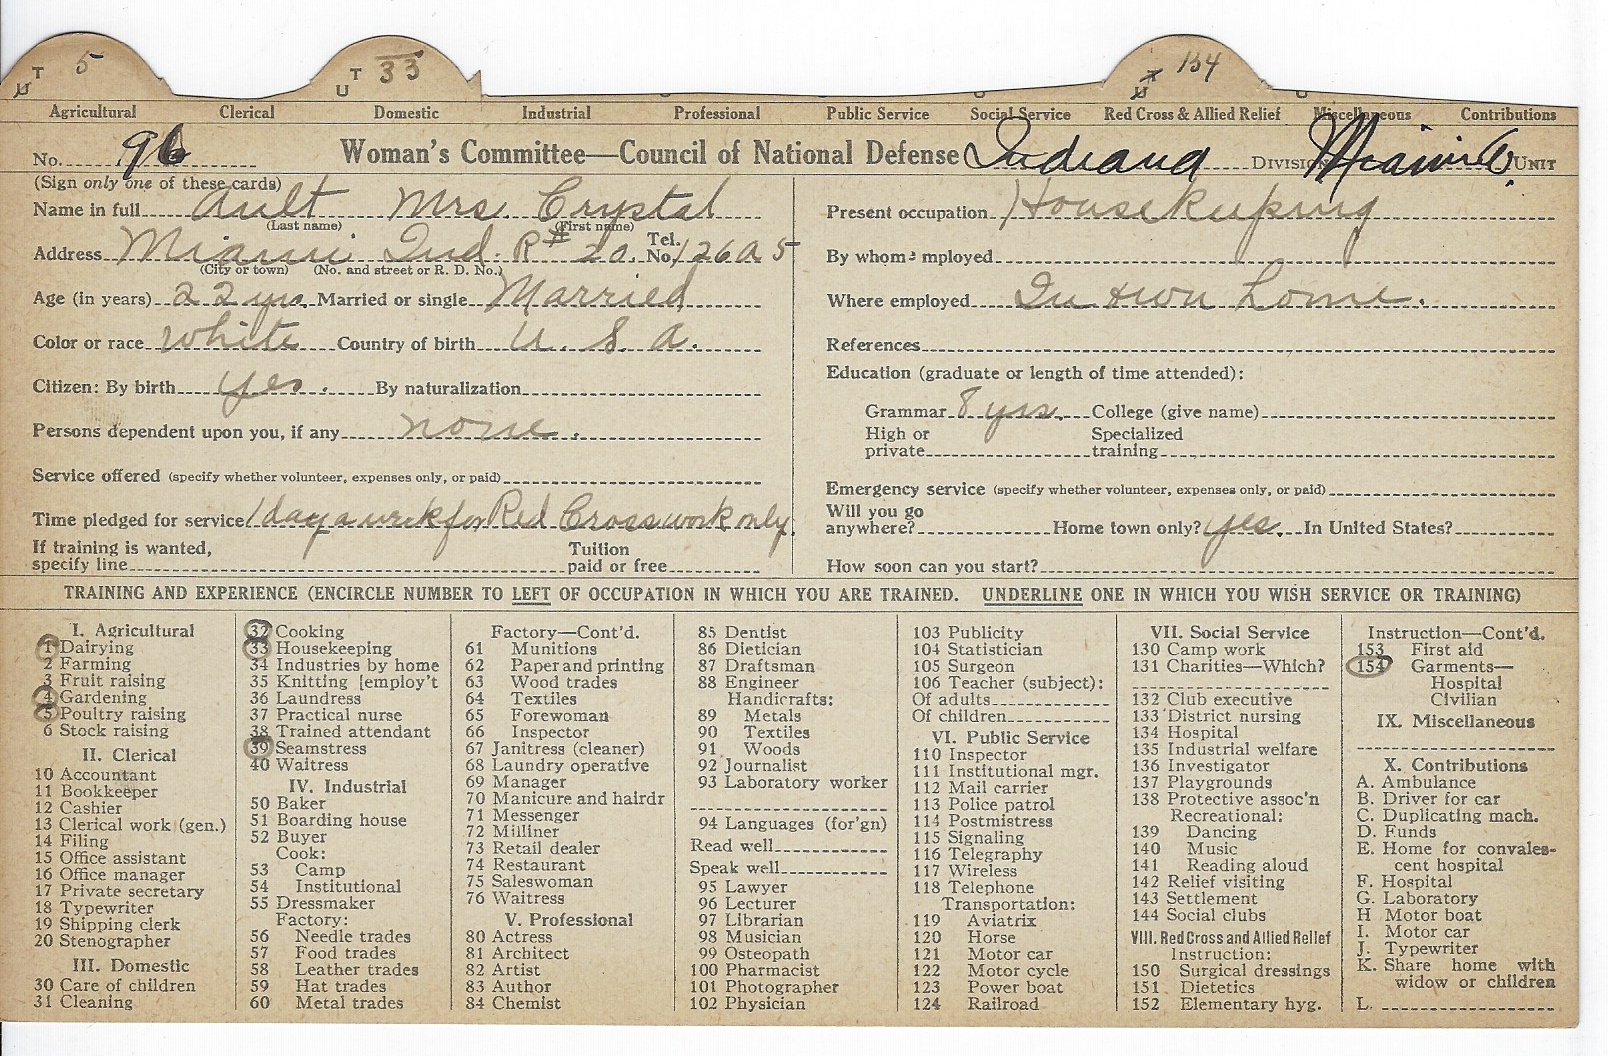 T 5 T 33 T 154
U U U
Agricultural Clerical Domestic Industrial Professional Public Service Social Service Red Cross & Allied Relief Miscellaneous Contributions
No. 96 Woman's Committee—Council of National Defense Indiana Division Miami Co. Unit
(Sign only one of these cards)
Name in full Ault Mrs. Crystal
(Last name) (First name)
Address Miami Ind. R# 20. Tel. No. 126 A 5
(City or town) (No. and street or R. D. No.)
Age (in years) 22 yrs. Married or single Married
Color or race White Country of birth U. S. A.
Citizen: By birth yes. By naturalization
Persons dependent upon you, if any none.
Service offered (specify whether volunteer, expenses only, or paid)
Time pledged for service 1 day a week for Red Cross work only.
If training is wanted, specify line Tuition paid or free
Present occupation Housekeeping
By whom employed
Where employed In own home.
References
Education (graduate or length of time attended):
Grammar 8 yrs. College (give name)
High or private Specialized training
Emergency service (specify whether volunteer, expenses only, or paid)
Will you go anywhere? Home town only? yes. In United States?
How soon can you start?
TRAINING AND EXPERIENCE (ENCIRCLE NUMBER TO LEFT OF OCCUPATION IN WHICH YOU ARE TRAINED. UNDERLINE ONE IN WHICH YOU WISH SERVICE OR TRAINING)
I. Agricultural
1 Dairying
2 Farming
3 Fruit raising
4 Gardening
5 Poultry raising
6 Stock raising
II. Clerical
10 Accountant
11 Bookkeeper
12 Cashier
13 Clerical work (gen.)
14 Filing
15 Office assistant
16 Office manager
17 Private secretary
18 Typewriter
19 Shipping clerk
20 Stenographer
III. Domestic
30 Care of children
31 Cleaning
32 Cooking
33 Housekeeping
34 Industries by home
35 Knitting [employ't
36 Laundress
37 Practical nurse
38 Trained attendant
39 Seamstress
40 Waitress
IV. Industrial
50 Baker
51 Boarding house
52 Buyer
Cook:
53 Camp
54 Institutional
55 Dressmaker
Factory:
56 Needle trades
57 Food trades
58 Leather trades
59 Hat trades
60 Metal trades
Factory—Cont'd.
61 Munitions
62 Paper and printing
63 Wood trades
64 Textiles
65 Forewoman
66 Inspector
67 Janitress (cleaner)
68 Laundry operative
69 Manager
70 Manicure and hairdr
71 Messenger
72 Milliner
73 Retail dealer
74 Restaurant
75 Saleswoman
76 Waitress
V. Professional
80 Actress
81 Architect
82 Artist
83 Author
84 Chemist
85 Dentist
86 Dietician
87 Draftsman
88 Engineer
Handicrafts:
89 Metals
90 Textiles
91 Woods
92 Journalist
93 Laboratory worker
94 Languages (for'gn)
Read well
Speak well
95 Lawyer
96 Lecturer
97 Librarian
98 Musician
99 Osteopath
100 Pharmacist
101 Photographer
102 Physician
103 Publicity
104 Statistician
105 Surgeon
106 Teacher (subject):
Of adults
Of children
VI. Public Service
110 Inspector
111 Institutional mgr.
112 Mail carrier
113 Police patrol
114 Postmistress
115 Signaling
116 Telegraphy
117 Wireless
118 Telephone
Transportation:
119 Aviatrix
120 Horse
121 Motor car
122 Motor cycle
123 Power boat
124 Railroad
VII. Social Service
130 Camp work
131 Charities—Which?
132 Club executive
133 District nursing
134 Hospital
135 Industrial welfare
136 Investigator
137 Playgrounds
138 Protective assoc'n
Recreational:
139 Dancing
140 Music
141 Reading aloud
142 Relief visiting
143 Settlement
144 Social clubs
VIII. Red Cross and Allied Relief
Instruction:
150 Surgical dressings
151 Dietetics
152 Elementary hyg.
Instruction—Cont'd.
153 First aid
154 Garments—
Hospital
Civilian
IX. Miscellaneous
X. Contributions
A. Ambulance
B. Driver for car
C. Duplicating mach.
D. Funds
E. Home for convales-
cent hospital
F. Hospital
G. Laboratory
H Motor boat
I. Motor car
J. Typewriter
K. Share home with
widow or children
L.